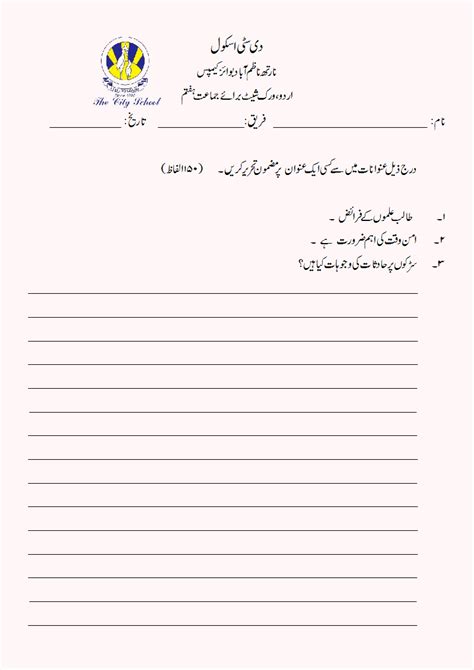 دی سٹی اسکول
نارتھ ناظم آباد بوائز کیمپس
اردو ورک شیٹ برائے جماعت ہفتم
The City School
نام: فریق: تاریخ:
درج ذیل عنوانات میں سے کسی ایک عنوان پر مضمون تحریر کریں۔ (۱۵۰ الفاظ)
۱۔ طالب علموں کے فرائض ۔
۲۔ امن وقت کی اہم ضرورت ہے ۔
۳۔ سڑکوں پر حادثات کی وجوہات کیا ہیں؟